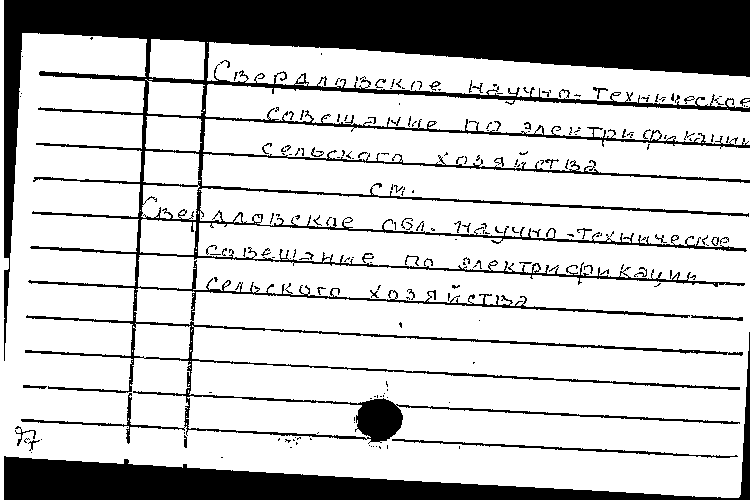 Свердловское научно-техническое
совещание по электрификации
сельского хозяйства
см.
Свердловское обл. научно-техническое
совещание по электрификации
сельского хозяйства